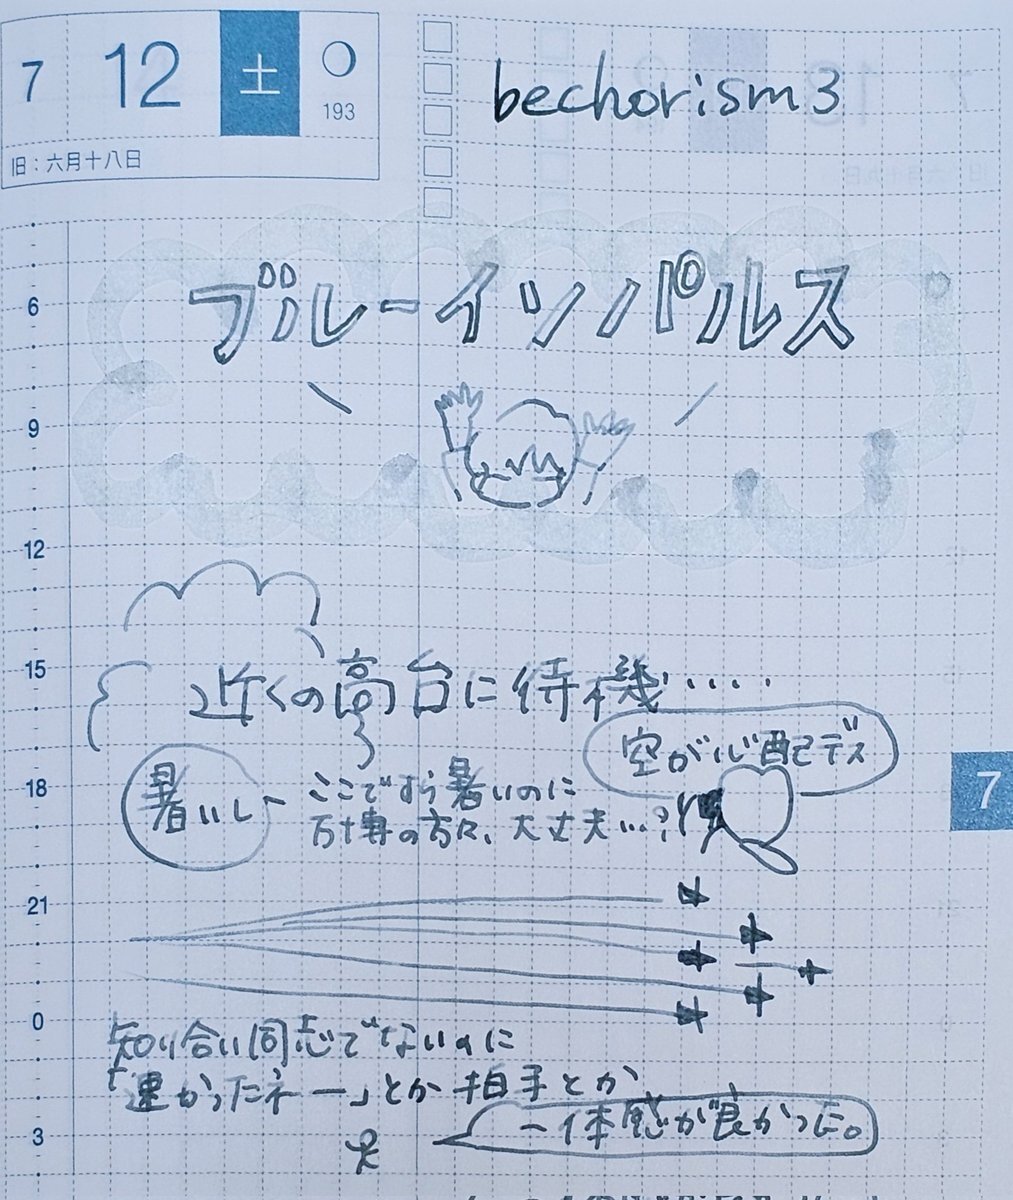 7 12 土 193
旧：六月十八日
bechorism3
ブルーインパルス
6
9
12
15
18
21
0
3
近くの高台に待機……
空が心配デス
暑いし
ここですら暑いのに
万博の方々、大丈夫…?
7
知り合い同志でないのに
「速かったネー」とか拍手とか
一体感が良かった。